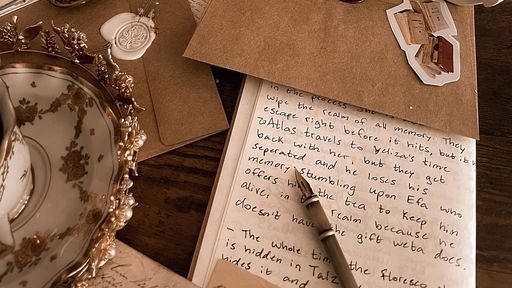 in the process she
wipe the realm of all memory. They
escape right before it hits, but it w
Atlas travels to Veliza's time
back with her, but they get
seperated and he loses his
memory stumbling upon Era who
offers him the tea to keep him
alive in the realm because he
doesn't have the gift weta does.
– The whole time the floresco
is hidden in Talz
hides it and